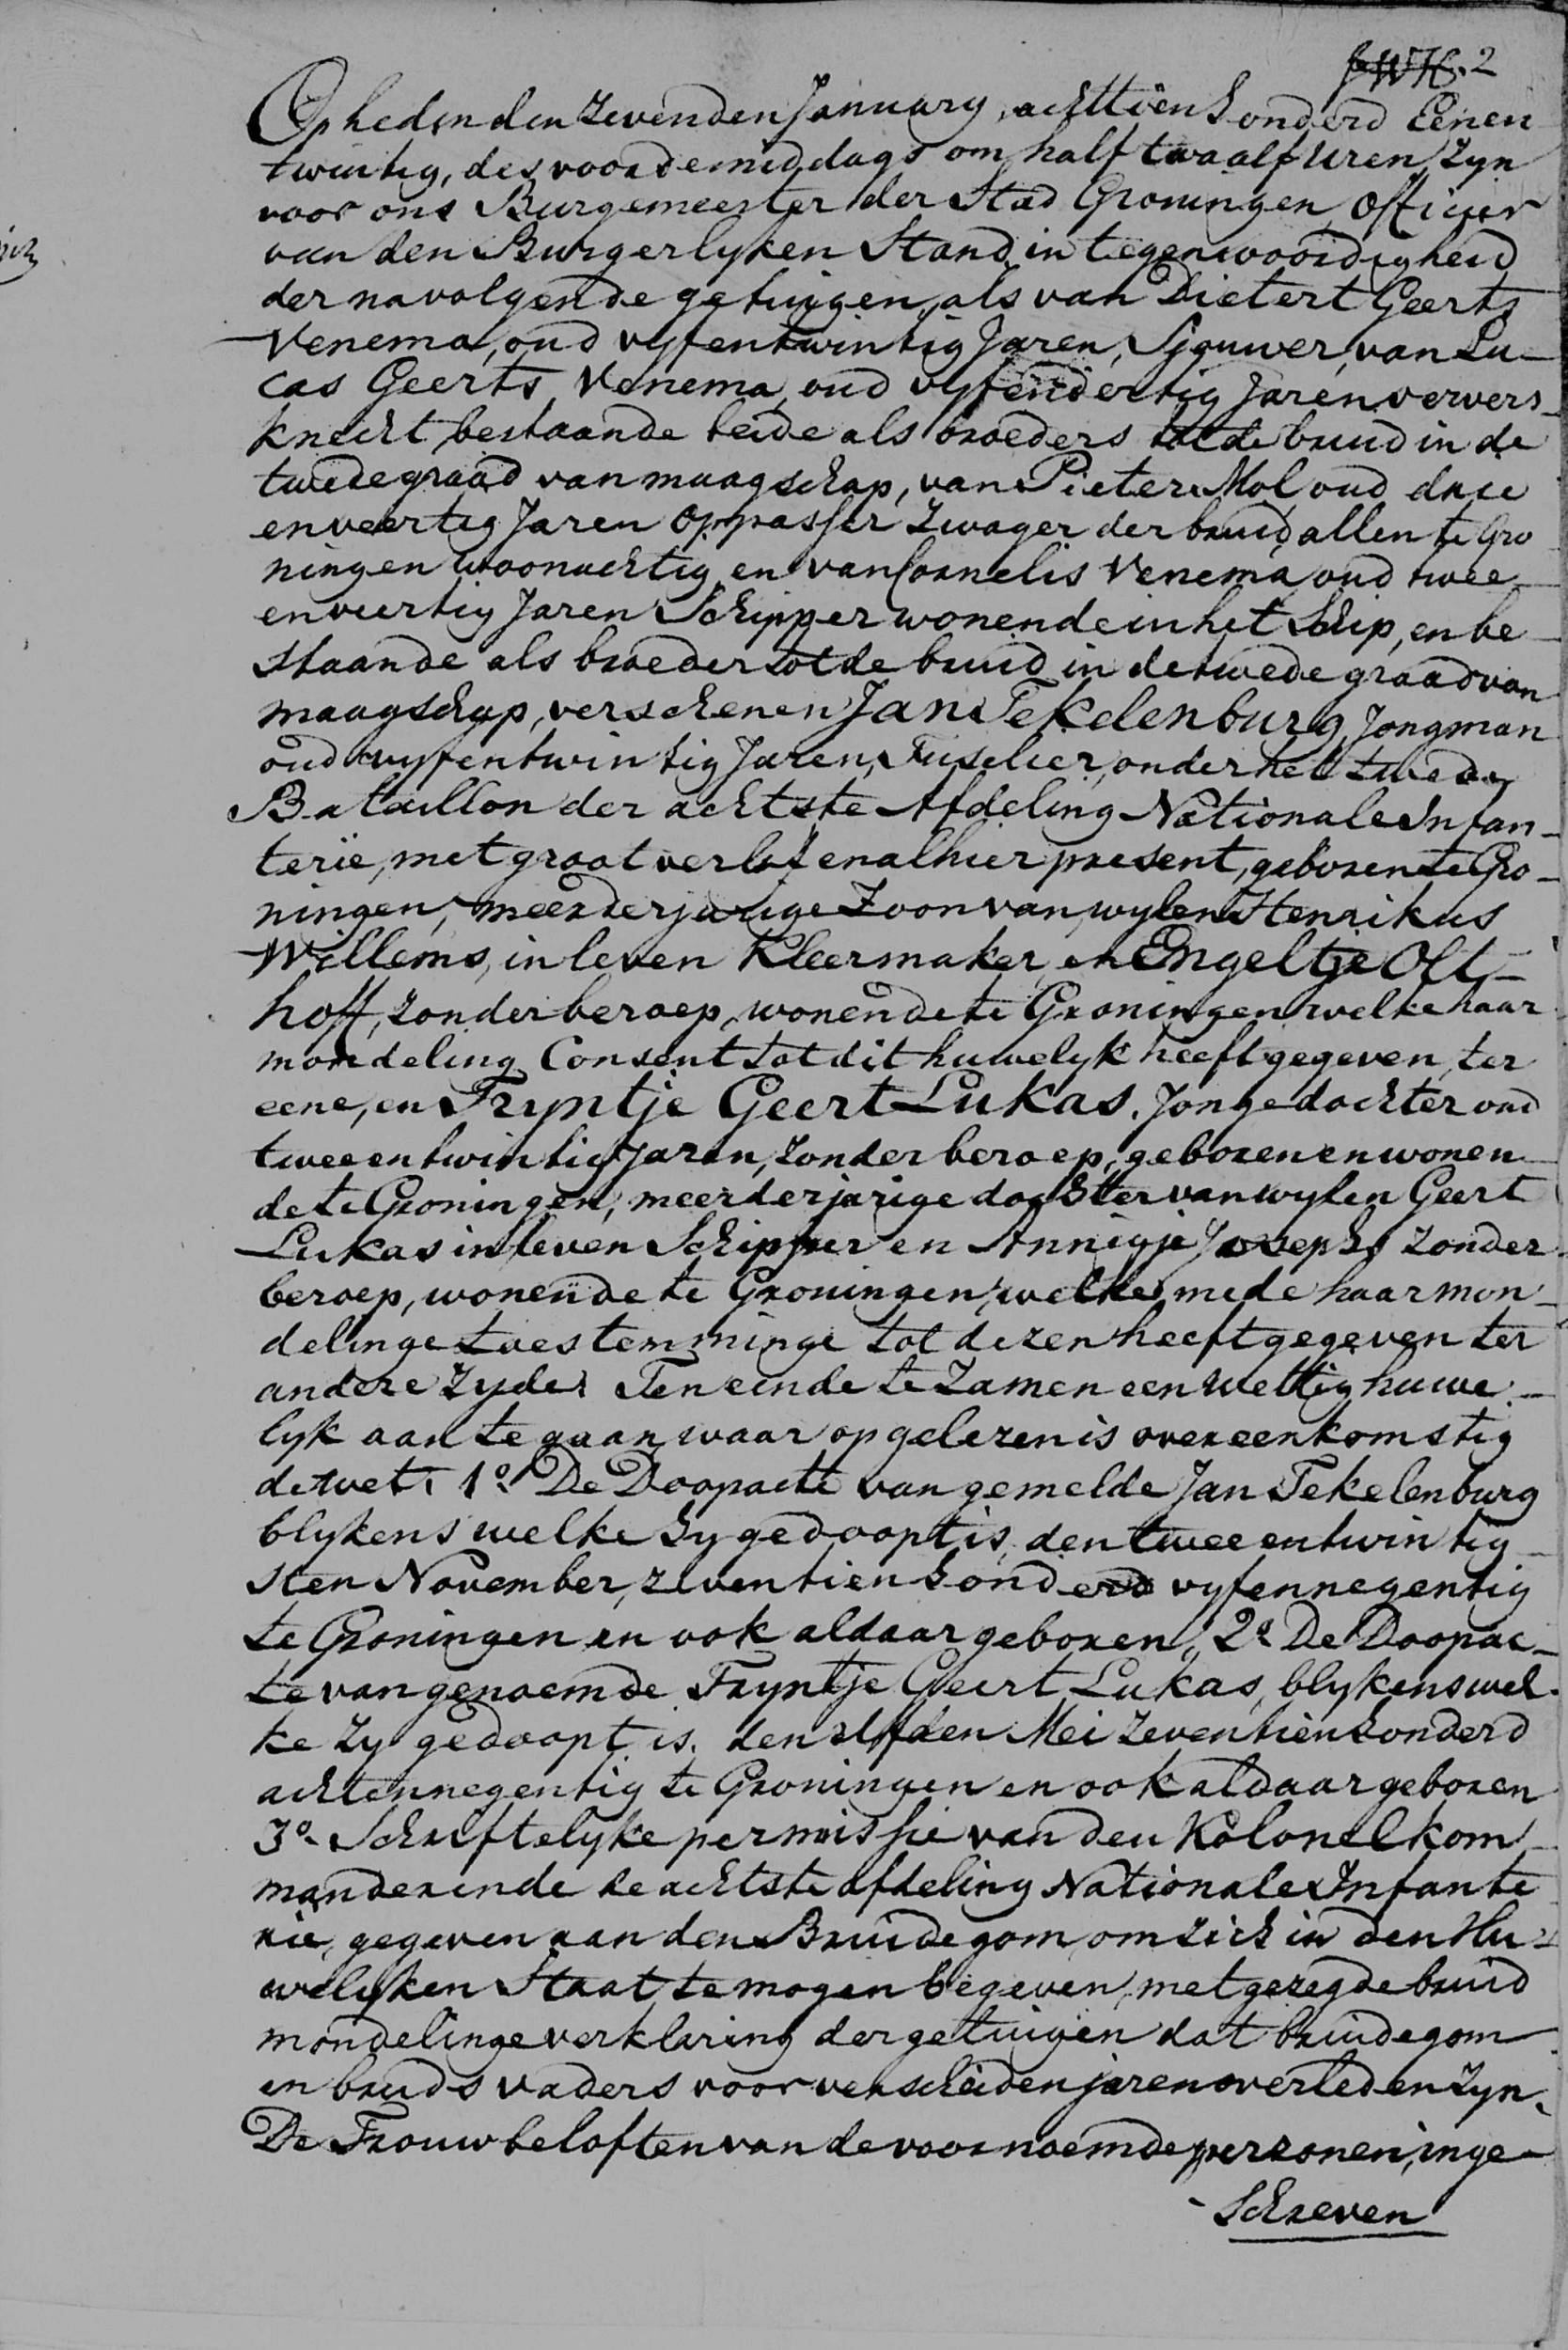 2
Op heden den zevenden January, achttien honderd Eenen
twintig, des voordemiddags om half twaalf uren, zyn
voor ons Burgemeester der Stad Groningen, Officier
van den Burgerlyken Stand, in tegenwoordigheid
der navolgende getuigen, als van Dietert Geerts
Venema, oud vyfentwintig Jaren, Sjouwer, van Lu-
cas Geerts Venema, oud vyfendertig Jaren ververs-
knecht bestaande beide als broeders tot de bruid in de
tweede graad van maagschap, van Pieter Mol, oud drie
enveertig Jaren Oppasser Zwager der bruid, allen te Gro
ningen woonachtig, en van Cornelis Venema, oud twee-
enveertig Jaren Schipper wonende in het Schip, en be-
staande als broeder tot de bruid in de twede graad van
maagschap, verschenen Jan Tekelenburg, Jongman
oud vyfentwintig Jaren, Fuselier, onder het twede
Bataillon der achtste Afdeling Nationale Infan-
terie, met groot verlof en alhier present, geboren te Gro-
ningen, meerderjarige Zoon van wylen Henrikus
Willems, in leven Kleermaker, en Engeltje Olt-
hoff, zonder beroep, wonende te Groningen welke haar
mondeling Consent tot dit huwelyk heeft gegeven, ter
eene, en Tryntje Geert Lukas, Jongedochter oud
tweeentwintig Jaren, zonder beroep, geboren en wonen-
de te Groningen, meerderjarige dochter van wylen Geert
Lukas in leven Schipper en Annigje Josephs zonder
beroep, wonende te Groningen, welke mede haar mon-
delinge toestemminge tot dezen heeft gegeven ter
andere zyde. Ten einde te zamen een wettig huwe-
lyk aan te gaan, waar op gelezen is overeenkomstig
de wet. 1º De Doopacte van gemelde Jan Tekelenburg
blykens welke hy gedoopt is, den tweeentwintig-
sten November, zeventien honderd vyfennegentig
te Groningen en ook aldaar geboren, 2º De Doopac-
te van genoemde Tryntje Geert Lukas, blykens wel-
ke zy gedoopt is, den elfden Mei zeventien honderd
achtennegentig te Groningen en ook aldaar geboren
3º Schriftelyke permissie van den Kolonel kom-
manderende de achtste afdeling Nationale Infante
rie, gegeven aan den Bruidegom, om zich in den Hu-
welyken Staat te mogen begeven, met gezegde bruid
mondelinge verklaring der getuigen dat bruidegom
en bruids vaders voor verscheiden jaren overleden zyn.
De Trouwbeloften van de voornoemde personen, inge-
schreven